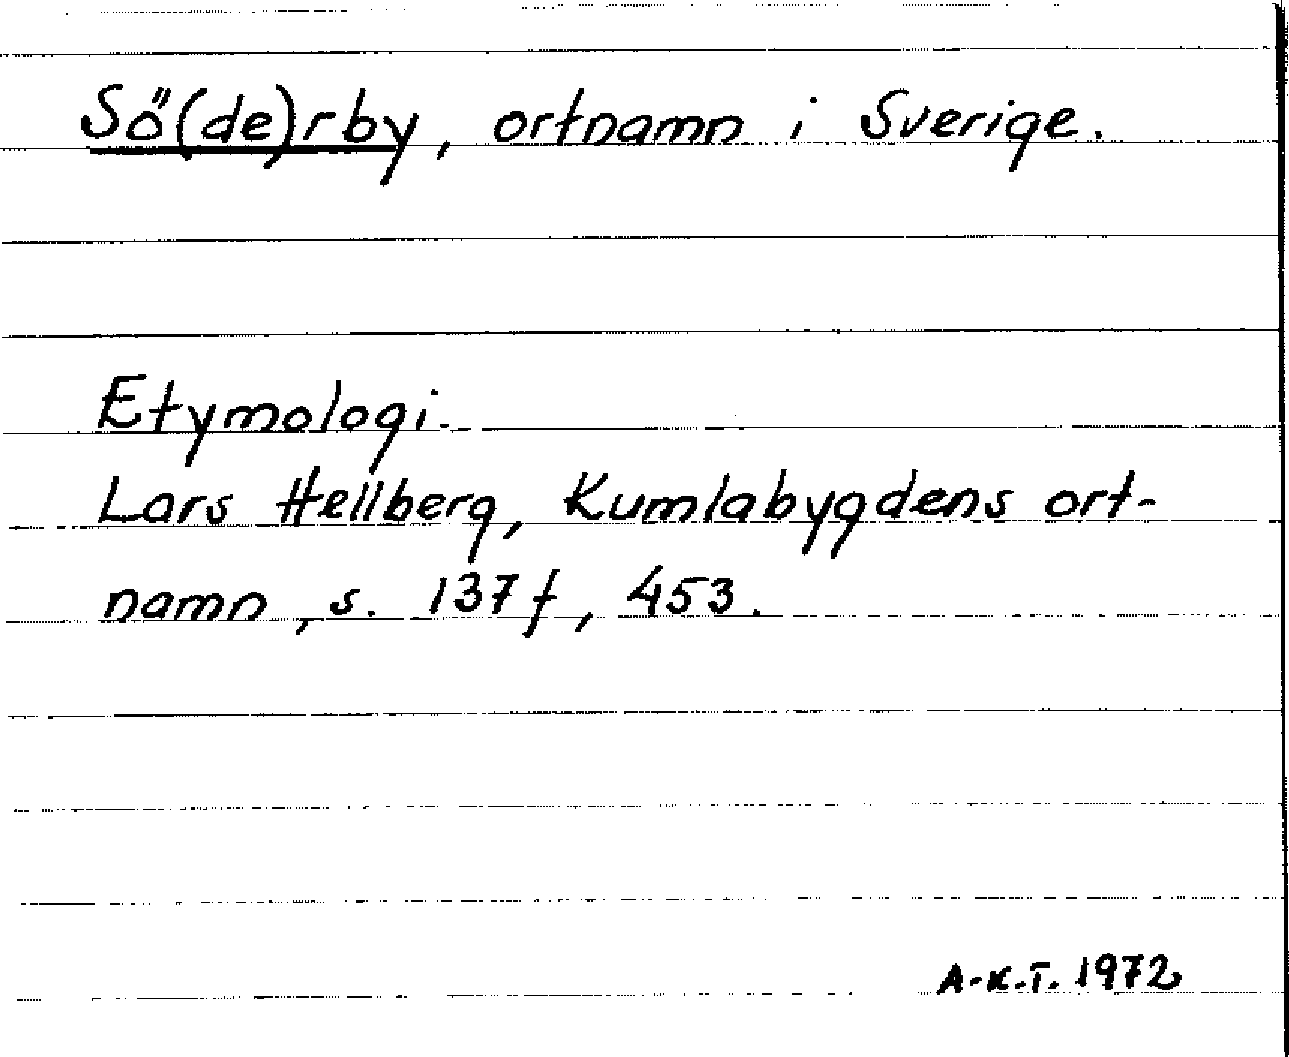 Sö(de)rby, ortnamn i Sverige.
Etymologi.
Lars Hellberg, Kumlabygdens ort-
namn, s. 137 f, 453.
A-K.T. 1972